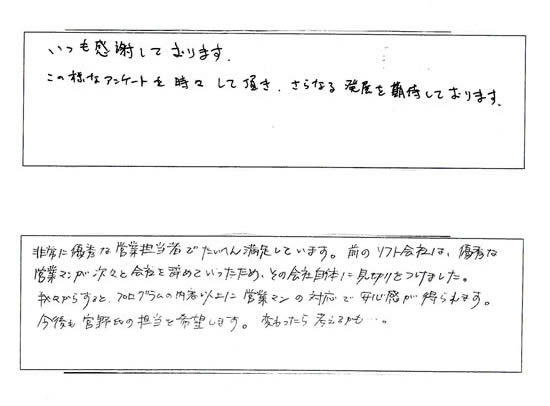 いつも感謝しております.
この様なアンケートを時々して頂き、さらなる発展を期待しております.
非常に優秀な営業担当者でたいへん満足しています。前のソフト会社は、優秀な
営業マンが次々と会社を辞めていったため、その会社自体に見切りをつけました。
我々からすると、プログラムの内容以上に営業マンの対応で安心感が得られます。
今後も宮野氏の担当を希望します。変わったら考えるかも…。